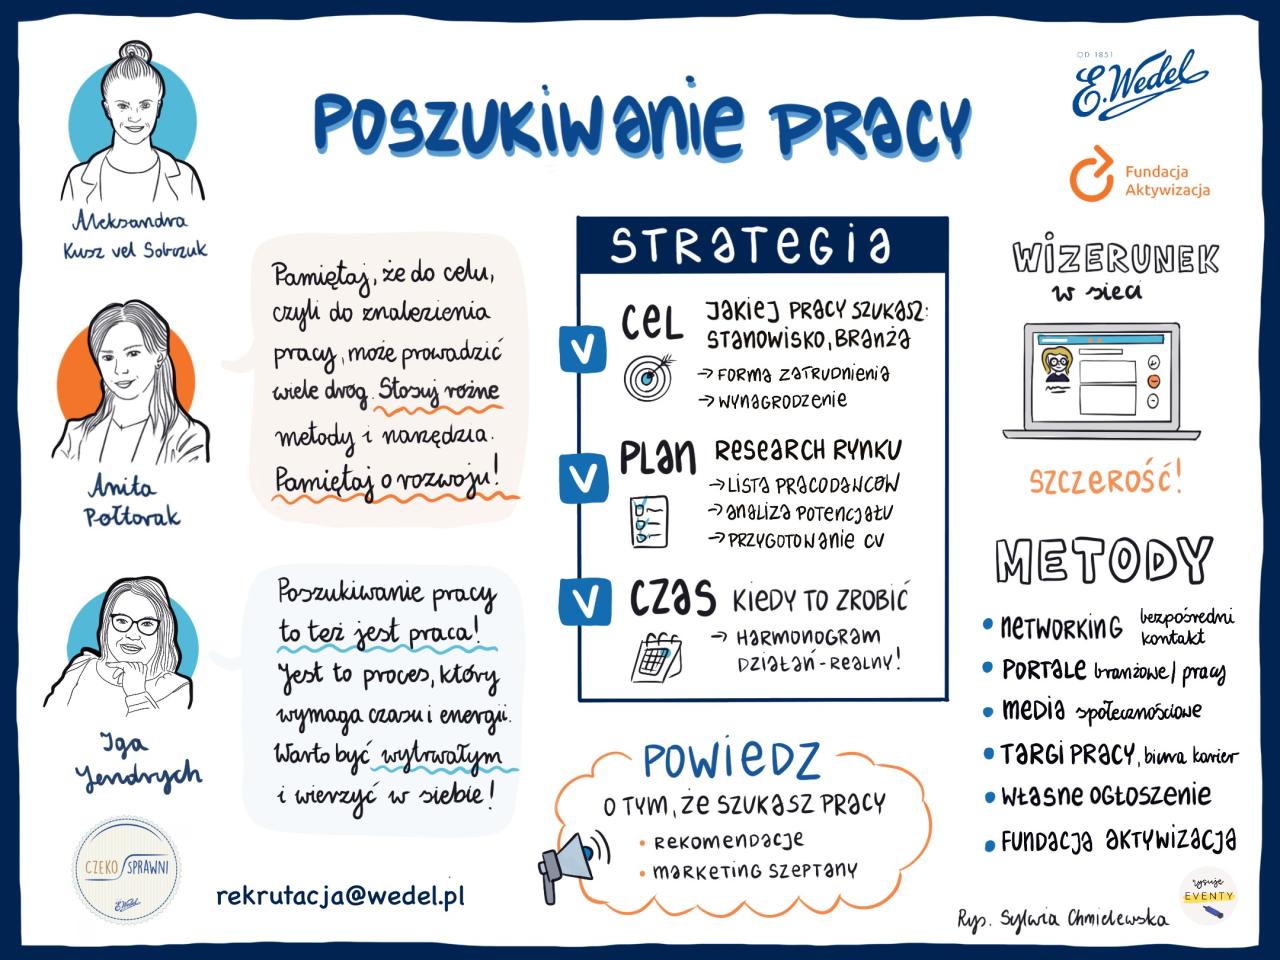 POSZUKIWANIE PRACY
OD 1851
E.Wedel
Fundacja
Aktywizacja
Aleksandra
Kusz vel Sobczuk
Anita
Półtorak
Iga
Jendrych
Pamiętaj, że do celu,
czyli do znalezienia
pracy, może prowadzić
wiele dróg. Stosuj różne
metody i narzędzia.
Pamiętaj o rozwoju!
Poszukiwanie pracy
to też jest praca!
Jest to proces, który
wymaga czasu i energii.
Warto być wytrwałym
i wierzyć w siebie!
CZEKO SPRAWNI
E.Wedel
rekrutacja@wedel.pl
STRATEGIA
V
CEL
JAKIEJ PRACY SZUKASZ:
STANOWISKO, BRANŻA
→ FORMA ZATRUDNIENIA
→ WYNAGRODZENIE
V
PLAN
RESEARCH RYNKU
→ LISTA PRACODAWCÓW
→ ANALIZA POTENCJAŁU
→ PRZYGOTOWANIE CV
V
CZAS
KIEDY TO ZROBIĆ
→ HARMONOGRAM
DZIAŁAŃ - REALNY!
POWIEDZ
O TYM, ŻE SZUKASZ PRACY
• REKOMENDACJE
• MARKETING SZEPTANY
WIZERUNEK
w sieci
SZCZEROŚĆ!
METODY
• NETWORKING bezpośredni
kontakt
• PORTALE branżowe / pracy
• MEDIA społecznościowe
• TARGI PRACY, biura karier
• WŁASNE OGŁOSZENIE
• FUNDACJA AKTYWIZACJA
rysuje
EVENTY
Rys. Sylwia Chmielewska